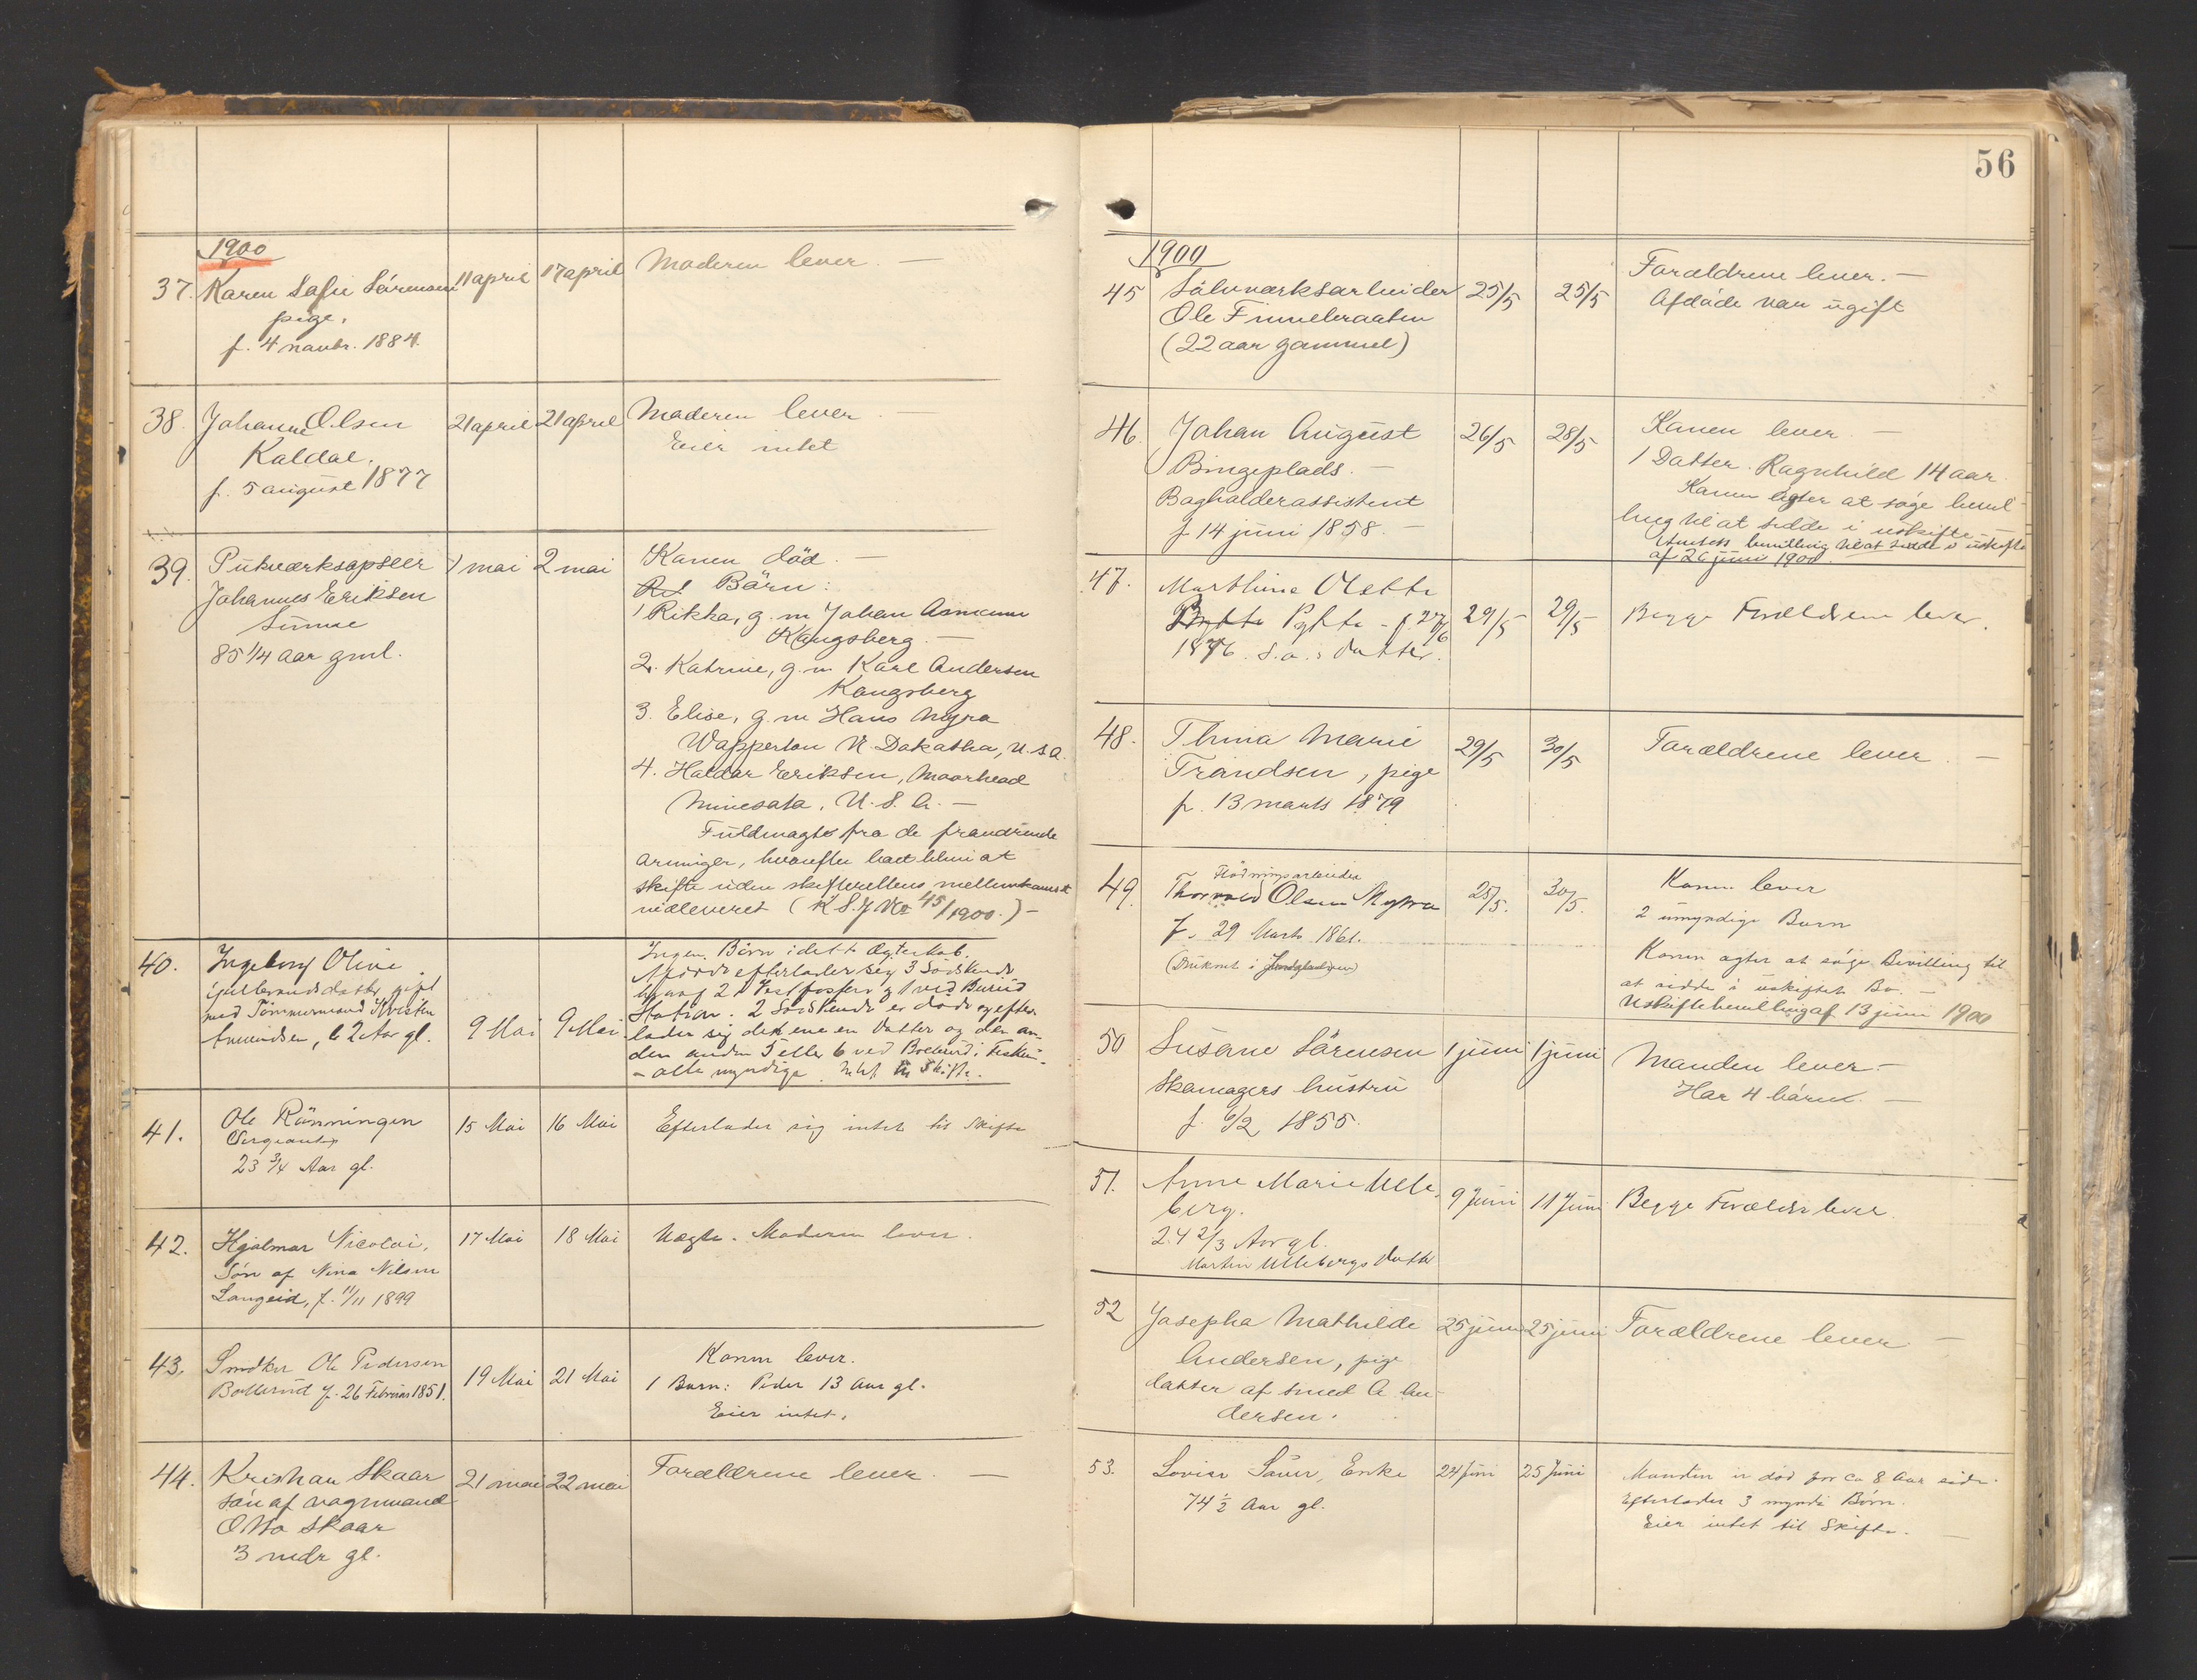 1900
37. Karen Sofie Sørensen 11 april 17 april Moderen lever. —
pige.
f. 4 novbr. 1884.
38. Johanne Olsen 21 april 21 april Moderen lever.
Koldal. Eier intet
f. 5 august 1877
39. Pukværksopseer 1 mai 2 mai Konen död. —
Johannes Eriksen Börn:
85 1/4 aar gml. 1 Rikka, g. m Johan
Kongsberg. —
2. Katrine, g. m Karl Andersen
Kongsberg
3. Elise, g. m Hans Myra
Wapperton N. Dakotha, U.S.A.
4. Haldor Eriksen, Moorhead
Minesota, U.S.A. —
Fuldmagt fra de fraværende
arvinger, hvorefter boet blev at
skifte uden skifterettens mellemkomst
udleveret (K.S.J No 45/1900.) —
40. Ingeborg Olive Ingen Börn i dette Ægteskab.
datter gift Afdöde efterlader sig 3 Södskende
med Tömmermand Kristen
Amundsen, 62 Aar gl. 9 Mai 9 Mai Station. 2 Södskende er döde og efter-
lader sig den ene en Datter og den an-
den 5 eller 6 ved
– alle myndige. Intet til Skifte.
41. Ole Rönningen 15 Mai 16 Mai Efterlader sig intet til Skifte
Sergeant
23 3/4 Aar gl.
42. Hjalmar Nicolai, 17 Mai 18 Mai Uægte. Moderen lever.
Sön af Nina Nilsen
Langeid, f. 11/11 1899
43. Ole Pedersen 19 Mai 21 Mai Konen lever.
Bollerud f. 26 Februar 1851. 1 Barn: Peder 13 Aar gl.
Eier intet.
44. Kristian Skaar 21 mai 22 mai Forældrene lever. —
sön af vognmand
Otto Skaar
3 mdr gl.
56
1900
45 Sölvværksarbeider 25/5 25/5 Forældrene lever. —
Ole Afdöde var ugift
(22 aar gammel)
46. Johan August 26/5 28/5 Konen lever. —
Bingeplads. — 1 Datter. Ragnhild 14 aar.
Bogholderassistent Konen agter at söge bevil-
f 14 juni 1858. — ling til at sidde i uskifte —
Amtets bevilling til at sidde i uskifte
af 26 juni 1900.
47. Marthine Olette
Pytte - f. 27/6 29/5 29/5 Begge Forældrene lever.
1876. datter.
48. Thina Marie 29/5 30/5 Forældrene lever. —
Trandsen, pige
f. 13 marts 1879
49. Flödningsarbeider
Thorvald Olsen Myhra 25/5. 30/5. Konen lever
f. 29 Marts 1861. 2 umyndige Barn
(Druknet i ) Konen agter at söge Bevilling til
at sidde i uskiftet Bo. —
Uskiftebevilling af 13 juni 1900
50 Susanne Sörensen 1 juni 1 juni Manden lever. —
Skomagers hustru Har 4 börn. —
f. 6/2 1855.
51. Anne Marie Ulle- 9 Juni 11 Juni Begge Forældre lever.
berg.
24 2/3 Aar gl.
Martin Ullebergs Datter
52 Josepha Mathilde 25 juni 25 juni Forældrene lever —
Andersen, pige
datter af smed A. An-
dersen.
53. Lovise Enke 24 Juni 25 Juni Manden er död for ca 8 Aar siden.
74 1/2 Aar gl. Efterlader 3 myndi Börn.
Eier intet til Skifte. —